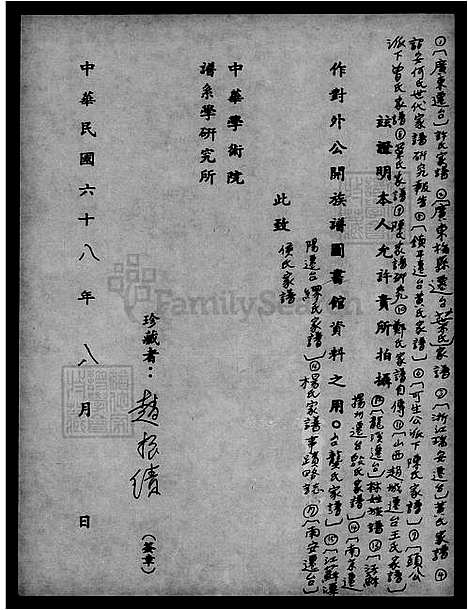 ①〔廣東遷台〕許氏家譜 ②〔廣東梅縣遷台〕葉氏家譜 ③〔浙江瑞安遷台〕黃氏家譜 ④
詔安何氏世代家譜研究報告 〔鎮平遷台黃氏家譜〕 〔可生公派下陳氏家譜〕 ⑦〔頭公
派下曾氏家譜 ⑧葉氏家譜 ⑨陳氏家譜研究 ⑩鄭氏家譜自傳 ⑪〔山西趙城遷台王氏家譜〕
茲證明本人允許貴所拍攝
〔龍溪遷台〕林姓族譜 ⑬〔江蘇
揚州遷台殷氏家譜〕 ⑭〔南京遷
作對外公開族譜圖書館資料之用。
台龔氏家譜〕 ⑮〔江蘇溧
陽遷台繆氏家譜〕 ⑯楊氏家譜事蹟略誌 ⑰〔南安遷台〕
侯氏家譜
此致
中華學術院
譜系學研究所
珍藏者：趙振績
(簽章)
中華民國六十八年 八月 日
FamilySearch